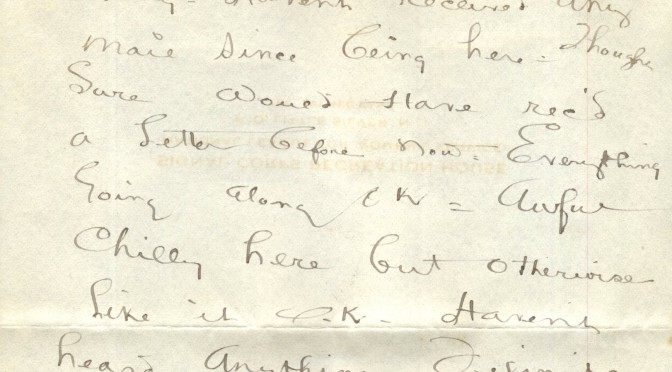 Haven't Received Any
Mail Since being here - Thought
Sure would Have rec'd
a Letter before Now - Everything
Going along OK - Awful
Chilly here but otherwise
Like it O.K. - Haven't
heard Anything Definite
SIGNAL CORPS RECREATION HOUSE